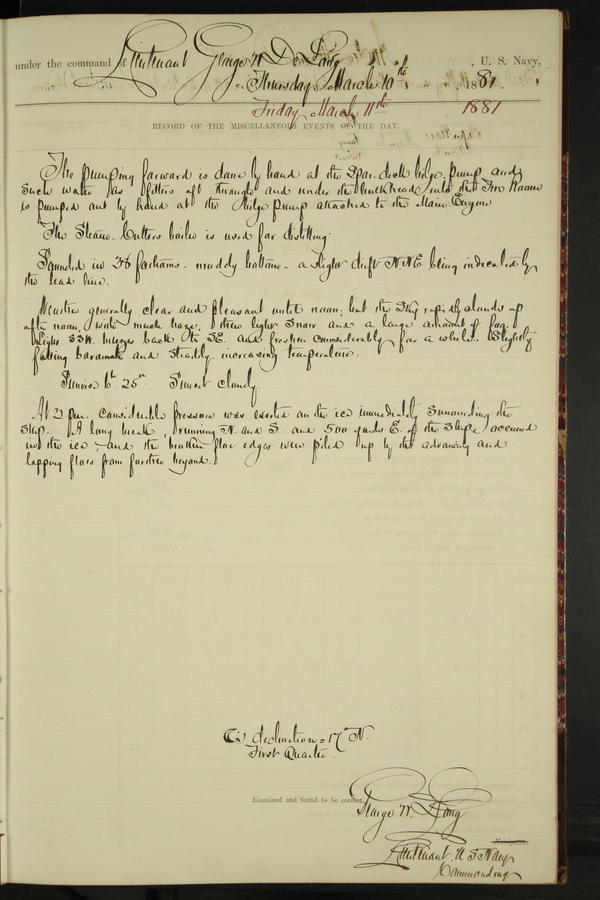 under the command of Lieutenant George W. De Long, U. S. Navy,
Thursday March 10th, 1881.
Friday March 11th 1881
RECORD OF THE MISCELLANEOUS EVENTS OF THE DAY.
The pumping forward is done by hand at the Spar-deck bilge-pump and
such water as filters aft through and under the bulkhead into the Fire Room
is pumped out by hand at the Bilge pump attached to the Main Engine
The Steam-Cutters boiler is used for distilling.
Sounded in 28 fathoms - muddy bottom - a slight drift NNE being indicated by
the lead line.
Weather generally clear and pleasant until noon; but the sky rapidly clouds up
after noon, with much haze, a light snow and a large amount of fog.
Light SSW. breezes back to SE. and freshen considerably for a while. Slightly
falling barometer and steadily increasing temperature.
Sunrise 6h 25m Sunset cloudy
At 2 p.m. considerable pressure was exerted on the ice immediately surrounding the
ship. A long break, running N. and S. and 500 yards E. of the ship occurred
in the ice, and the broken floe edges were piled up by the advancing and
lapping floes from further beyond.
declination = 17° N.
First Quarter
Examined and found to be correct.
George W. De Long
Navigator.
Lieutenant U S Navy
Commanding